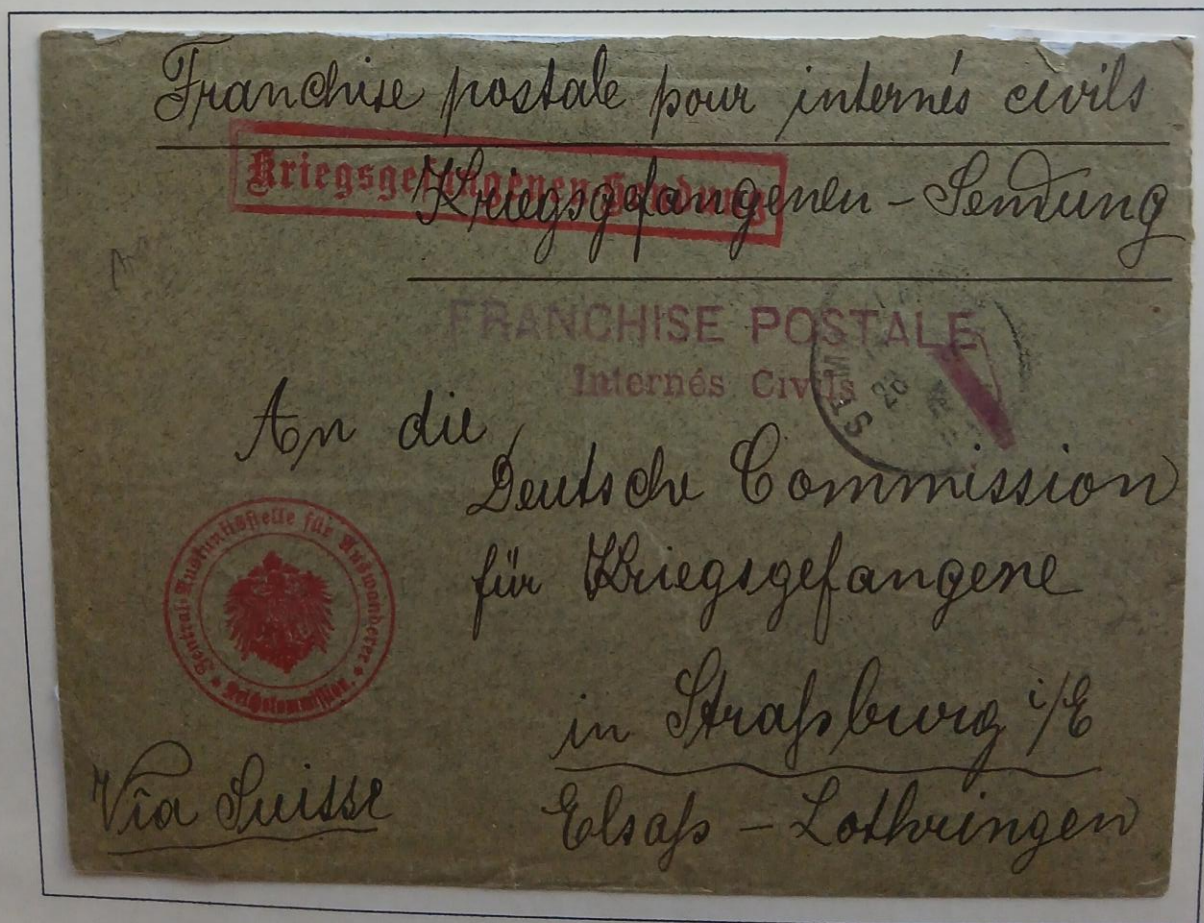 Franchise postale pour internés civils
Kriegsgefangenen-Sendung
Kriegsgefangenen - Sendung
FRANCHISE POSTALE
Internés Civils
ST M
20
An die
Deutsche Commission
für Kriegsgefangene
in Straßburg i/E
Elsaß - Lothringen
Zentral-Auskunftsstelle für Auswanderer
Reichskommission.
Via Suisse